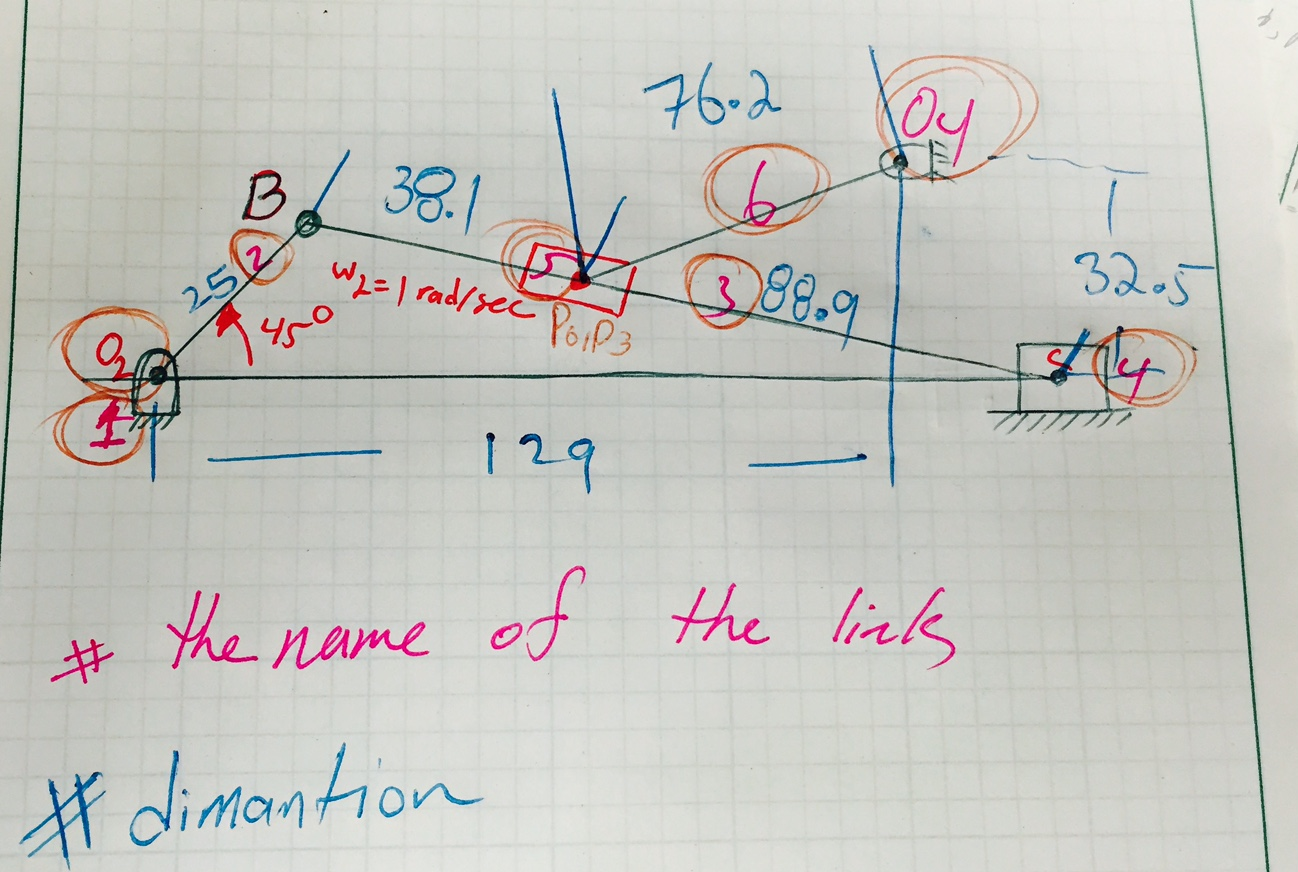 76.2
O4
B
38.1
6
2
25
5
3
88.9
32.5
W2=1 rad/sec
45°
P6,P3
O2
4
1
129
# the name of the links
# dimantion